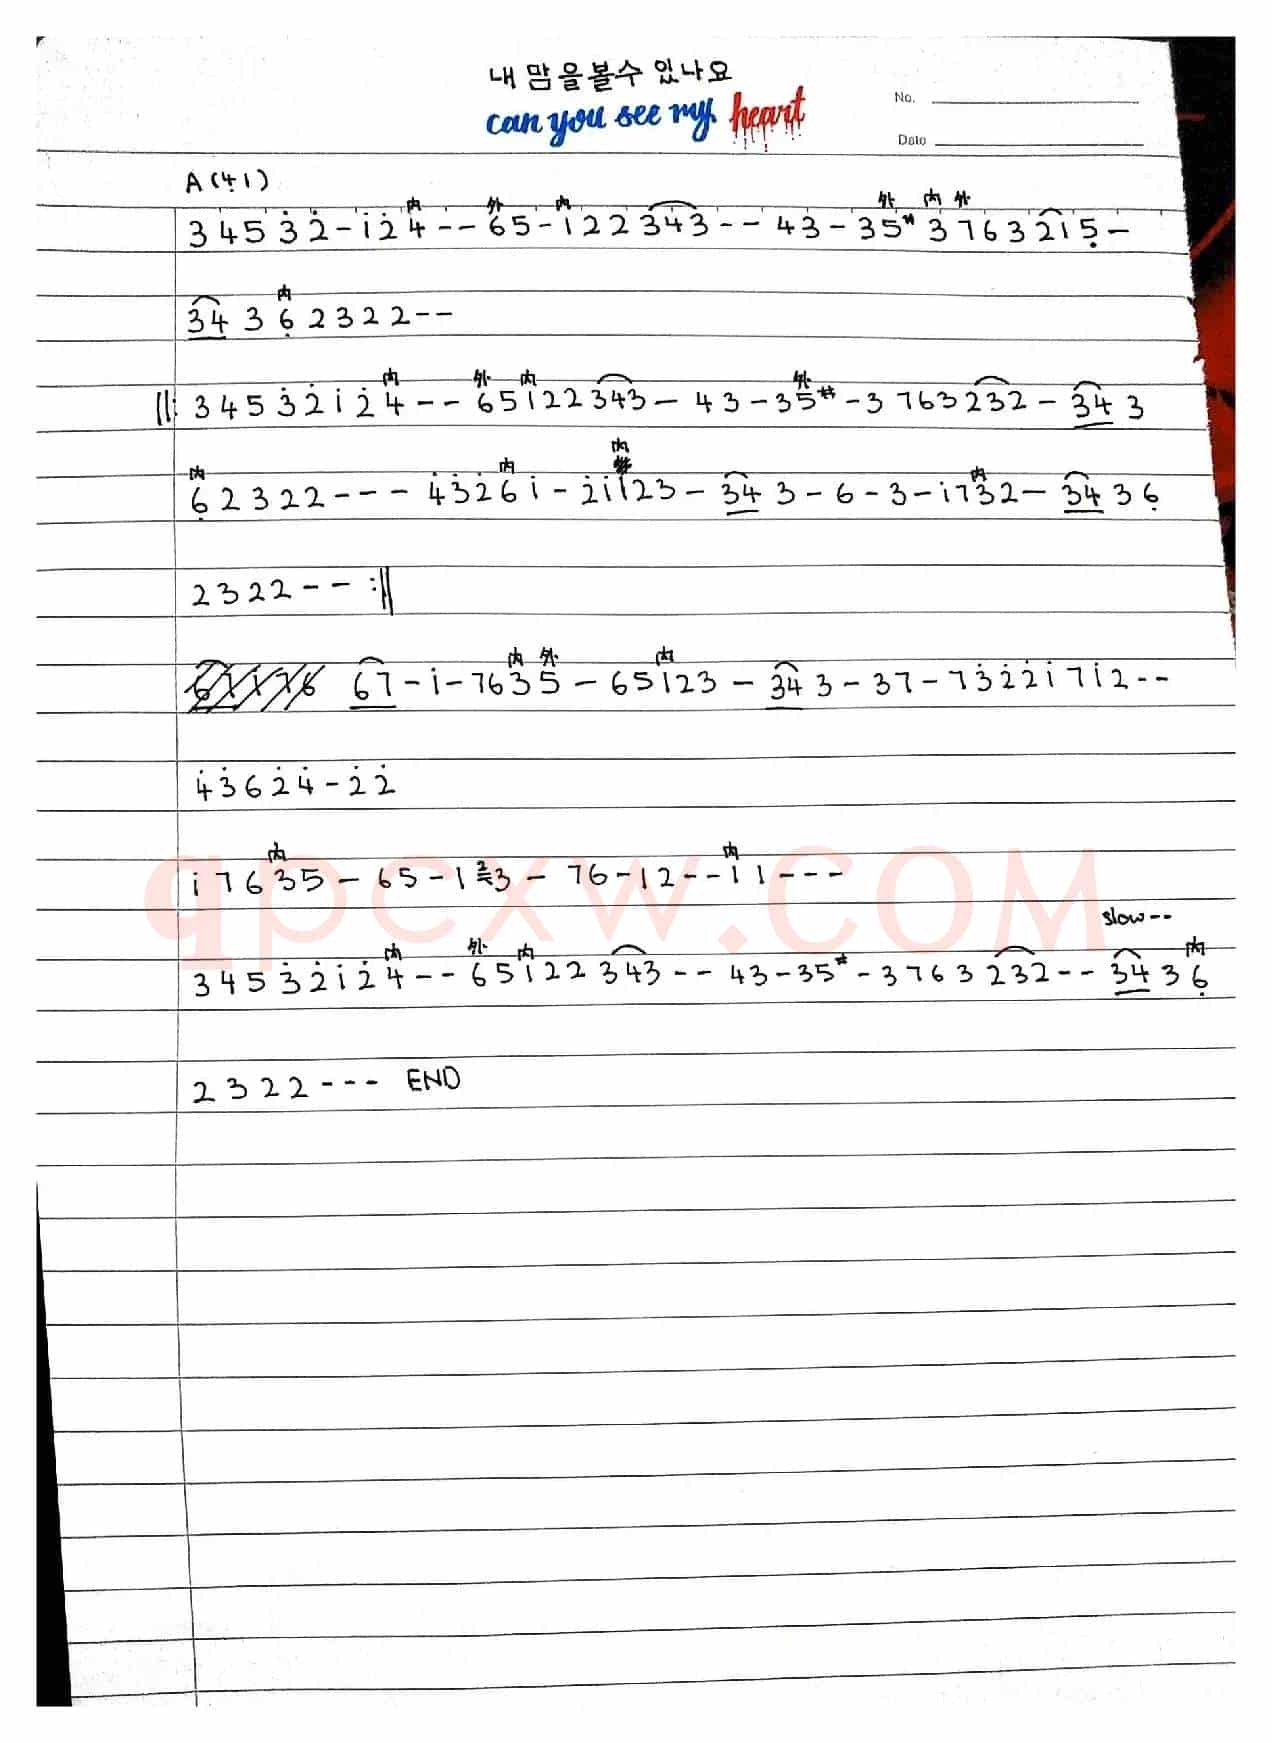 내 맘을볼수 있나요
can you see my heart
No.
Date
A (4̣ 1)
内 外 内 外 内 外
3 4 5 3̇ 2̇ - i 2̇ 4̇ - - 6 5 - 1 2 2 3 4 3 - - 4 3 - 3 5 # 3 7 6 3 2 1 5̣ -
内
3 4 3 6̣ 2 3 2 2 - -
内 外 内 外
‖: 3 4 5 3̇ 2̇ i 2̇ 4̇ - - 6 5 1 2 2 3 4 3 - 4 3 - 3 5 # - 3 7 6 3 2 3 2 - 3 4 3
内 内 内 内
6̣ 2 3 2 2 - - - 4̇ 3̇ 2̇ 6 i - 2̇ i 1 1 2 3 - 3 4 3 - 6 - 3 - i 7 3 2 - 3 4 3 6̣
2 3 2 2 - - :‖
内 外 内
6 7 - i - 7 6 3 5 - 6 5 1 2 3 - 3 4 3 - 3 7 - 7 3̇ 2̇ 2̇ i 7 i 2 - -
4̇ 3̇ 6 2̇ 4̇ - 2̇ 2̇
内 内
i 7 6 3 5 - 6 5 - 1 2 3 - 7 6 - 1 2 - - 1 1 - - -
qpcxw.COM
slow--
内 外 内 内
3 4 5 3̇ 2̇ i 2̇ 4̇ - - 6 5 1 2 2 3 4 3 - - 4 3 - 3 5 # - 3 7 6 3 2 3 2 - - 3 4 3 6̣
2 3 2 2 - - - END